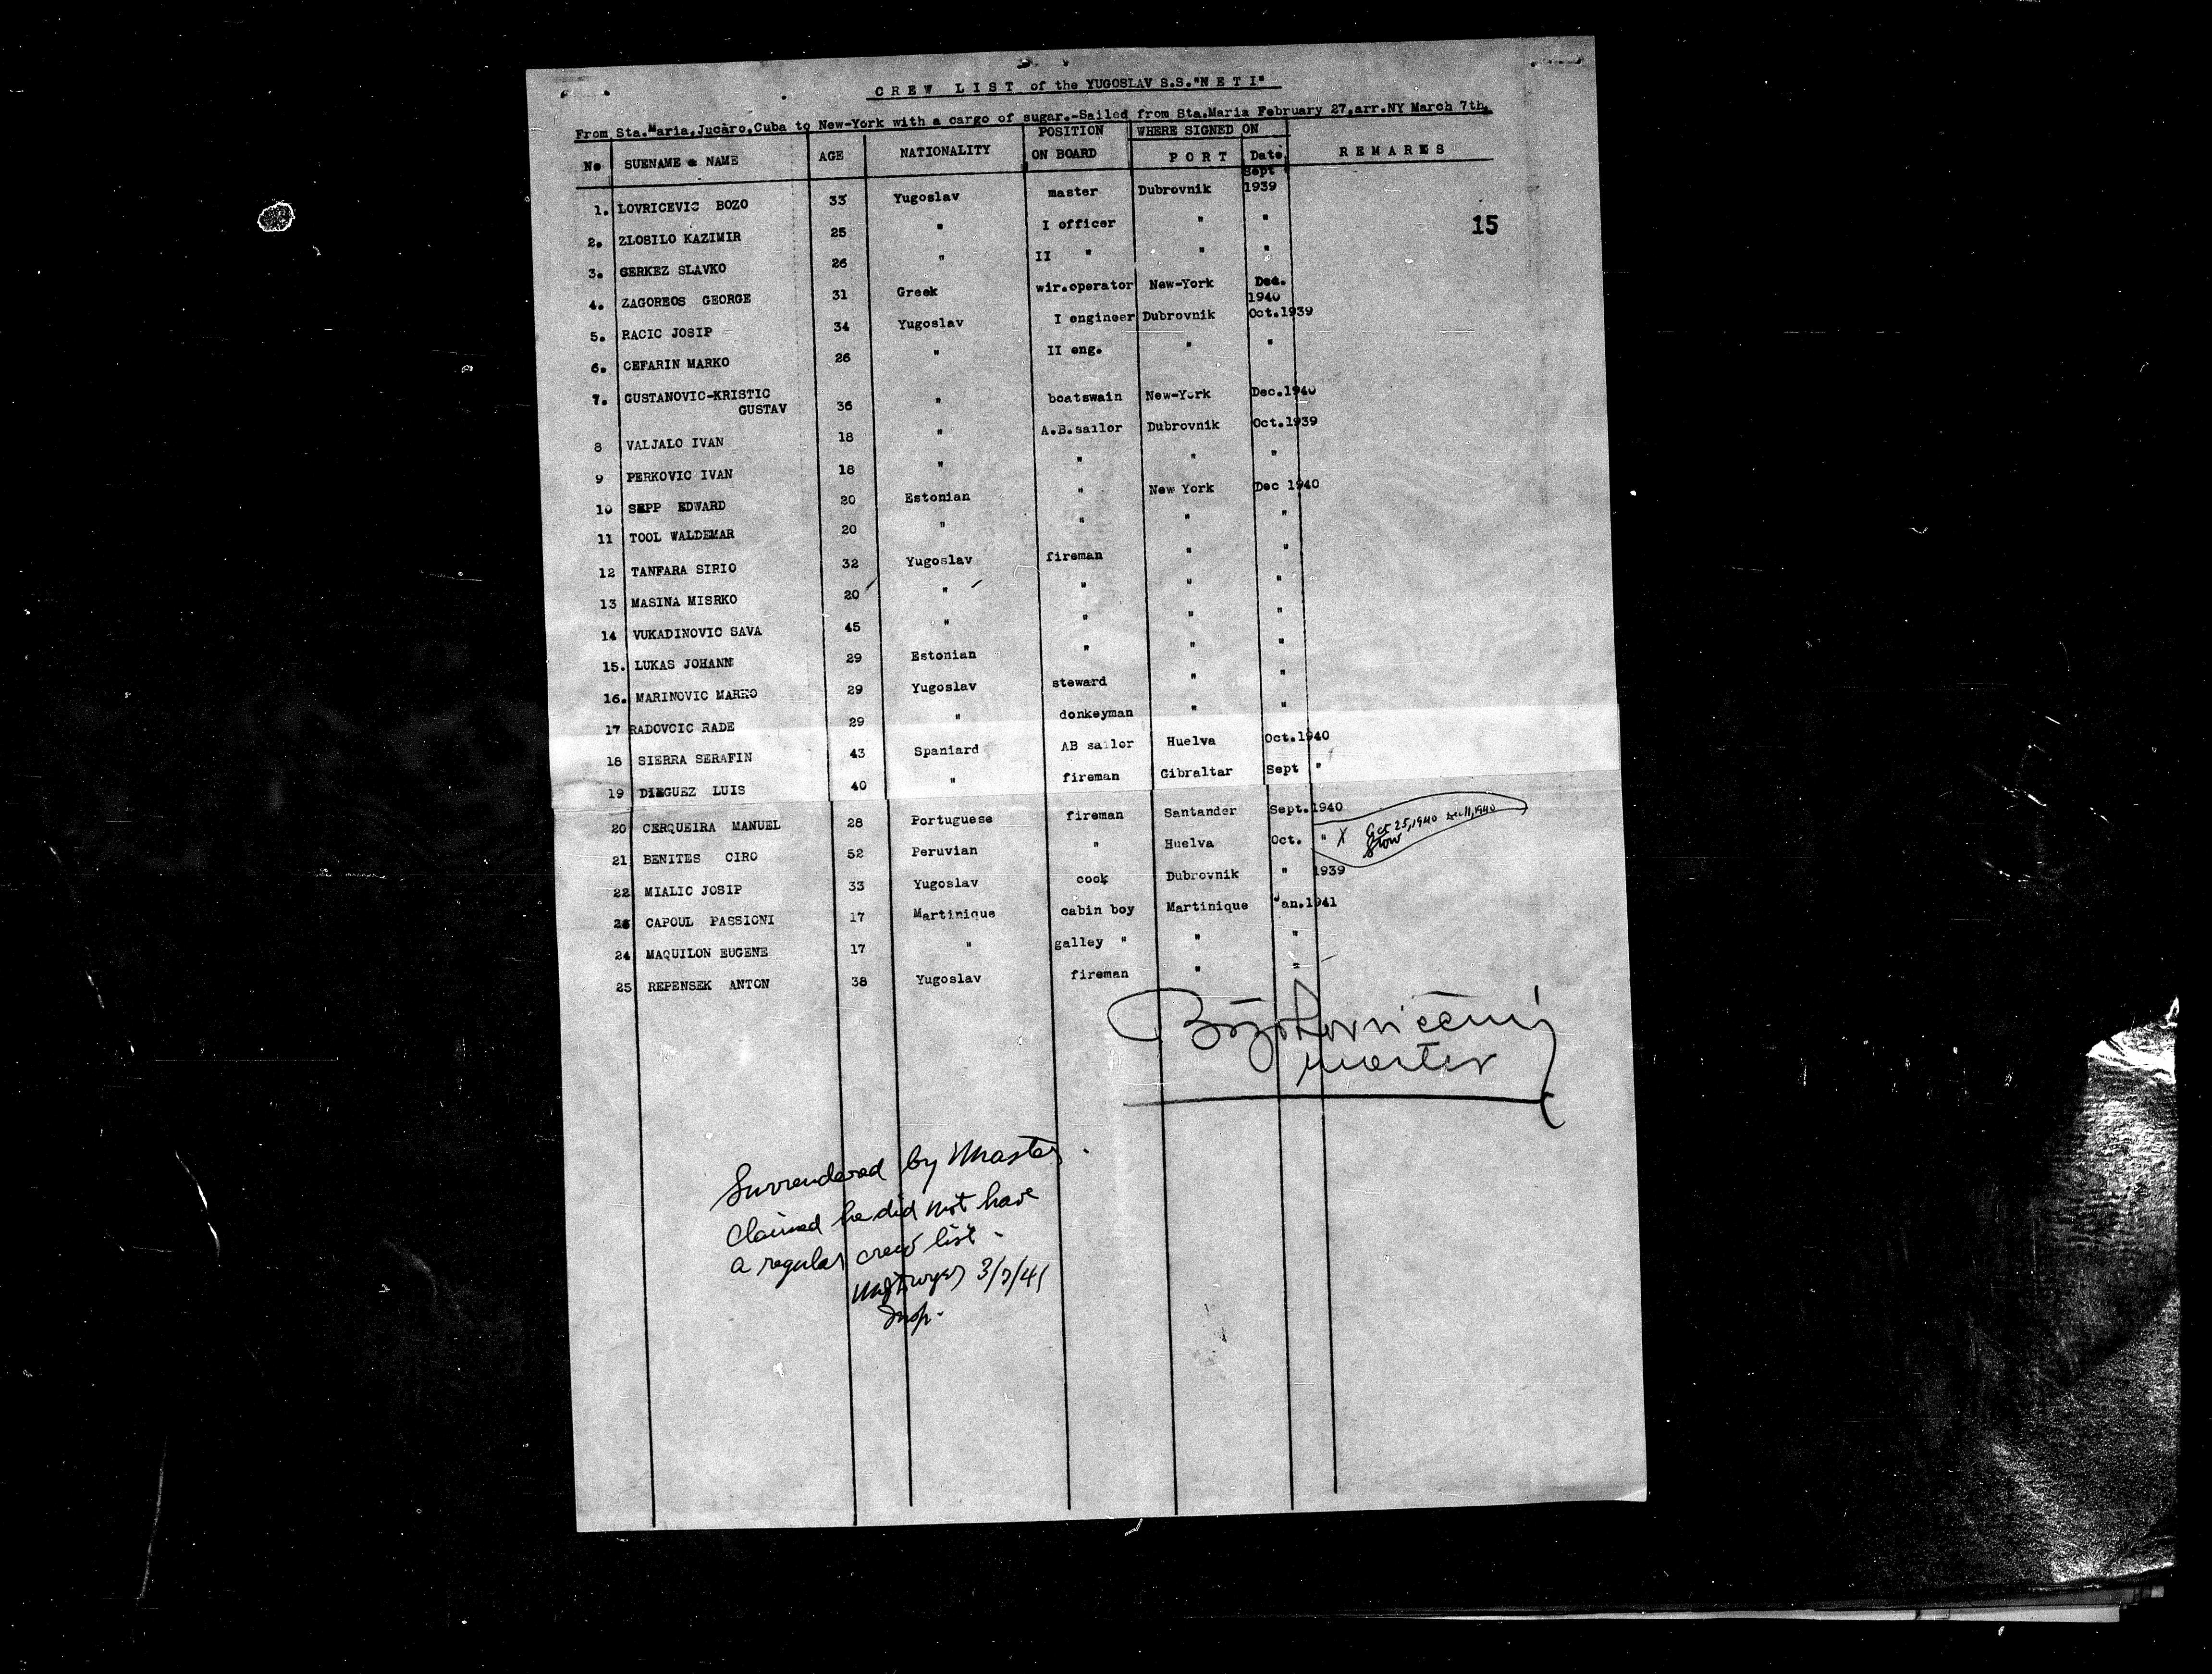 CREW LIST of the YUGOSLAV S.S."NETI"
From Sta.Maria,Jucàro,Cuba to New-York with a cargo of sugar.-Sailed from Sta.Maria February 27,arr.NY March 7th.
No SUENAME & NAME AGE NATIONALITY POSITION ON BOARD WHERE SIGNED ON PORT Date REMARKS
1. LOVRICEVIC BOZO 33 Yugoslav master Dubrovnik Sept 1939
15
2. ZLOSILO KAZIMIR 25 " I officer " "
3. GERKEZ SLAVKO 26 " II " " "
4. ZAGOREOS GEORGE 31 Greek wir.operator New-York Dec. 1940
5. RACIC JOSIP 34 Yugoslav I engineer Dubrovnik Oct.1939
6. CEFARIN MARKO 26 " II eng. " "
7. GUSTANOVIC-KRISTIC
GUSTAV 36 " boatswain New-York Dec.1940
8 VALJALO IVAN 18 " A.B.sailor Dubrovnik Oct.1939
9 PERKOVIC IVAN 18 " " " "
10 SEPP EDWARD 20 Estonian " New York Dec 1940
11 TOOL WALDEMAR 20 " " " "
12 TANFARA SIRIO 32 Yugoslav fireman " "
13 MASINA MISRKO 20 " " " "
14 VUKADINOVIC SAVA 45 " " " "
15. LUKAS JOHANN 29 Estonian " " "
16. MARINOVIC MARKO 29 Yugoslav steward " "
17 RADOVCIC RADE 29 " donkeyman " "
18 SIERRA SERAFIN 43 Spaniard AB sailor Huelva Oct.1940
19 DIEGUEZ LUIS 40 " fireman Gibraltar Sept "
20 CERQUEIRA MANUEL 28 Portuguese fireman Santander Sept.1940
21 BENITES CIRO 52 Peruvian " Huelva Oct. " X Oct 25,1940 Dec 11,1940
22 MIALIC JOSIP 33 Yugoslav cook Dubrovnik " 1939
23 CAPOUL PASSIONI 17 Martinique cabin boy Martinique Jan.1941
24 MAQUILON EUGENE 17 " galley " " "
25 REPENSEK ANTON 38 Yugoslav fireman " "
Božo Lovričević
master
Surrendered by Master.
Claimed he did not have
a regular crew list -
3/7/41
Insp.